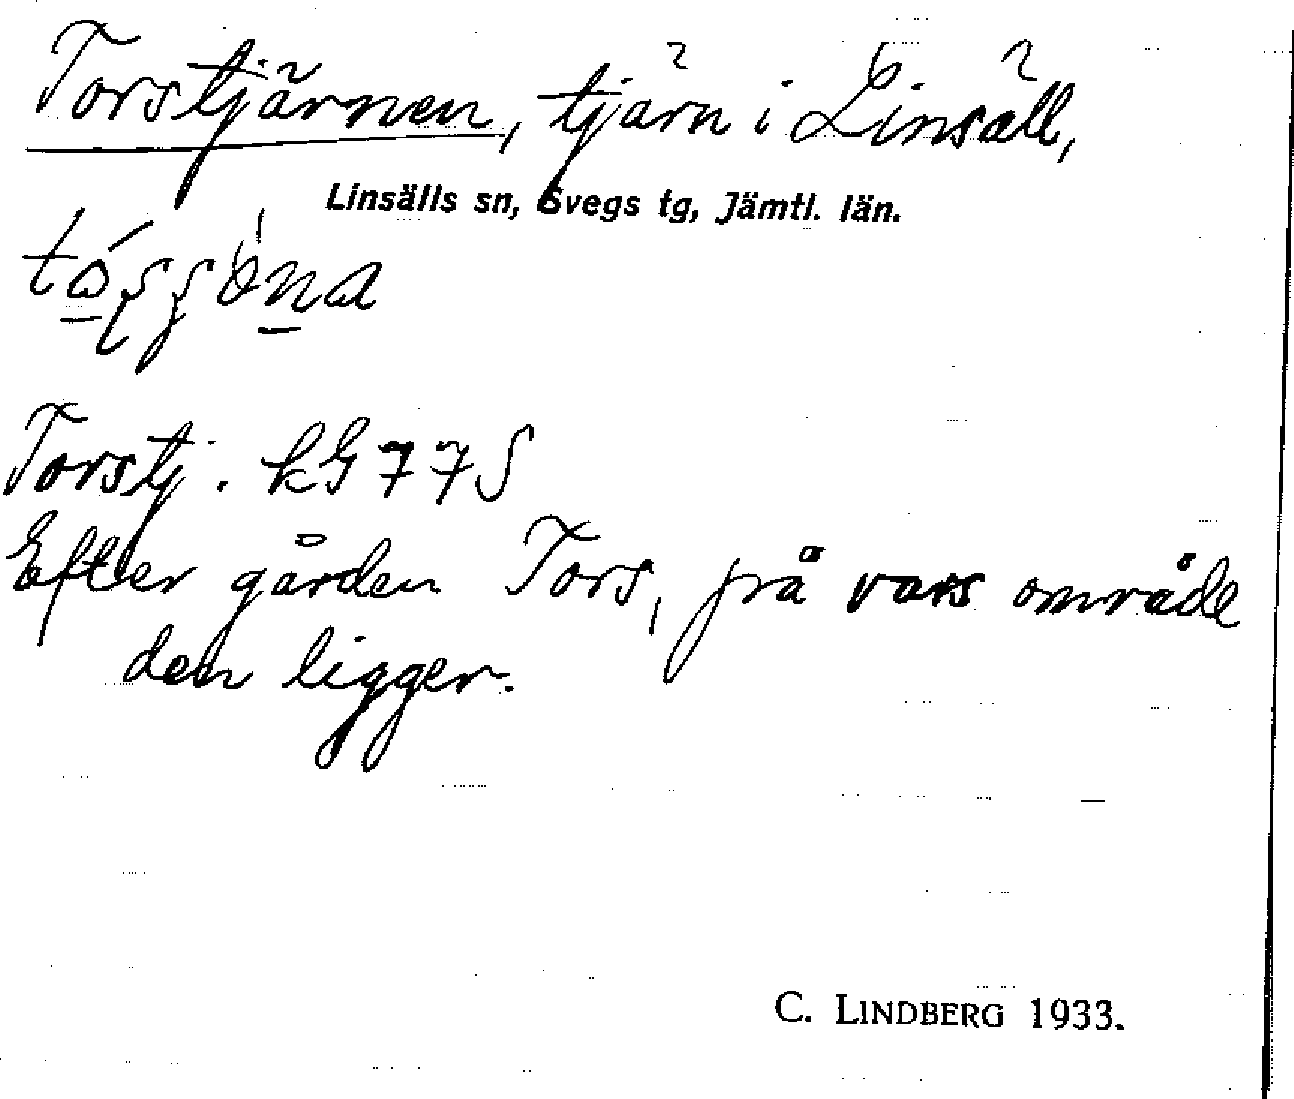 Torstjärnen, tjärn i Linsäll,
Linsälls sn, Svegs tg, Jämtl. län.
Torstj. kG 77S
Efter gården Tors, på vars område
den ligger.
C. LINDBERG 1933.